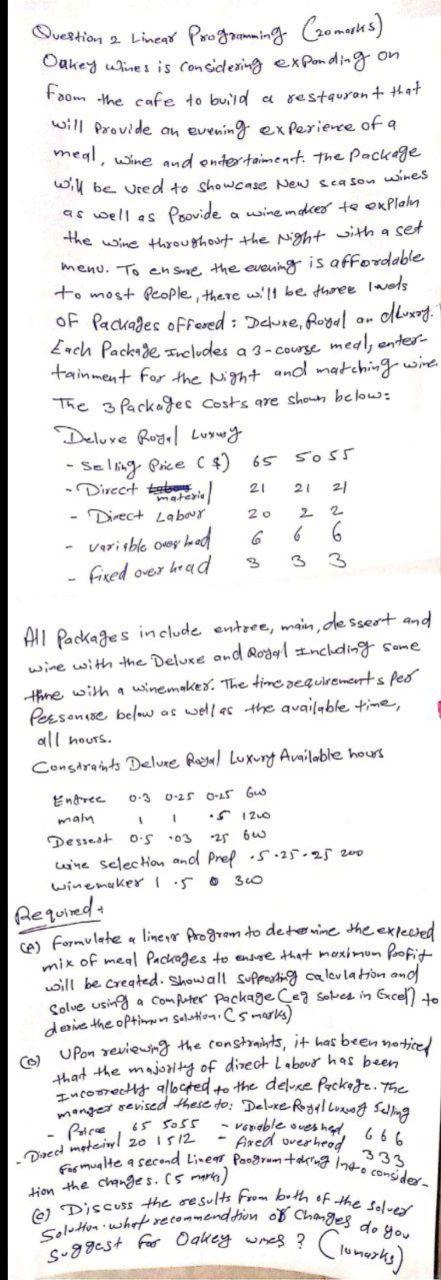 Question 2 Linear Programming (20 marks)
Oakey Wines is considering expanding on
from the cafe to build a restaurant that
will provide an evening experience of a
meal, wine and entertaiment. The package
will be used to showcase New season wines
as well as Provide a winemaker to explain
the wine throughout the Night with a set
menu. To ensure the evening is affordable
to most people, there will be three levels
of Packages offered: Deluxe, Royal an d luxury.
Each Package Includes a 3-course meal, enter-
tainment for the Night and matching wine.
The 3 Packages Costs are shown below:
Deluxe Royal Luxury
- Selling Price ($) 65 50 55
- Direct material 21 21 21
- Direct Labour 20 2 2
- variable over head 6 6 6
- fixed over head 3 3 3
All Packages include entree, main, dessert and
wine with the Deluxe and Royal Including some
time with a winemaker. The time requirements per
Person are below as well as the available time,
all hours.
Constraints Deluxe Royal Luxury Available hours
Entree 0.3 0.25 0.25 600
main 1 1 .5 1200
Dessert 0.5 .03 .25 600
wine selection and Prep .5 .25 .25 200
winemaker 1 .5 0 300
Required:
(A) Formulate a linear Program to determine the expected
mix of meal Packages to ensure that maximum Profit
will be created. Show all supporting calculation and
Solve using a computer Package (eg solves in Excel) to
derive the optimum solution. (5 marks)
(B) Upon reviewing the constraints, it has been noticed
that the majority of direct Labour has been
Incorrectly allocated to the deluxe Package. The
manger revised these to: Deluxe Royal Luxury Selling
- Price 65 50 55 - variable overhed 6 6 6
- Direct material 20 15 12 - fixed overhead 3 3 3
Formualte a second Linear Program taking Into consider-
tion the changes. (5 marks)
(c) Discuss the results from both of the solver
Solution. what recommendtion of Changes do you
suggest for Oakey wines? (10 marks)